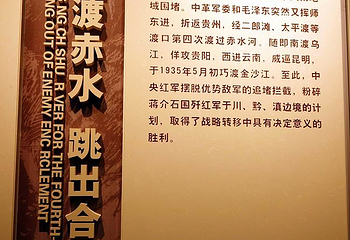 渡赤水 跳出合
NG CH SHU R VER FOR THE FOURTH-
NG OUT OF ENEMY ENC RCLEMENT
域困堵。中革军委和毛泽东突然又挥师
东进，折返贵州，经二郎滩、太平渡等
渡口第四次渡过赤水河。随即南渡乌
江，佯攻贵阳，西进云南，威逼昆明，
于1935年5月初巧渡金沙江。至此，中
央红军摆脱优势敌军的追堵拦截，粉碎
蒋介石围歼红军于川、黔、滇边境的计
划，取得了战略转移中具有决定意义的
胜利。